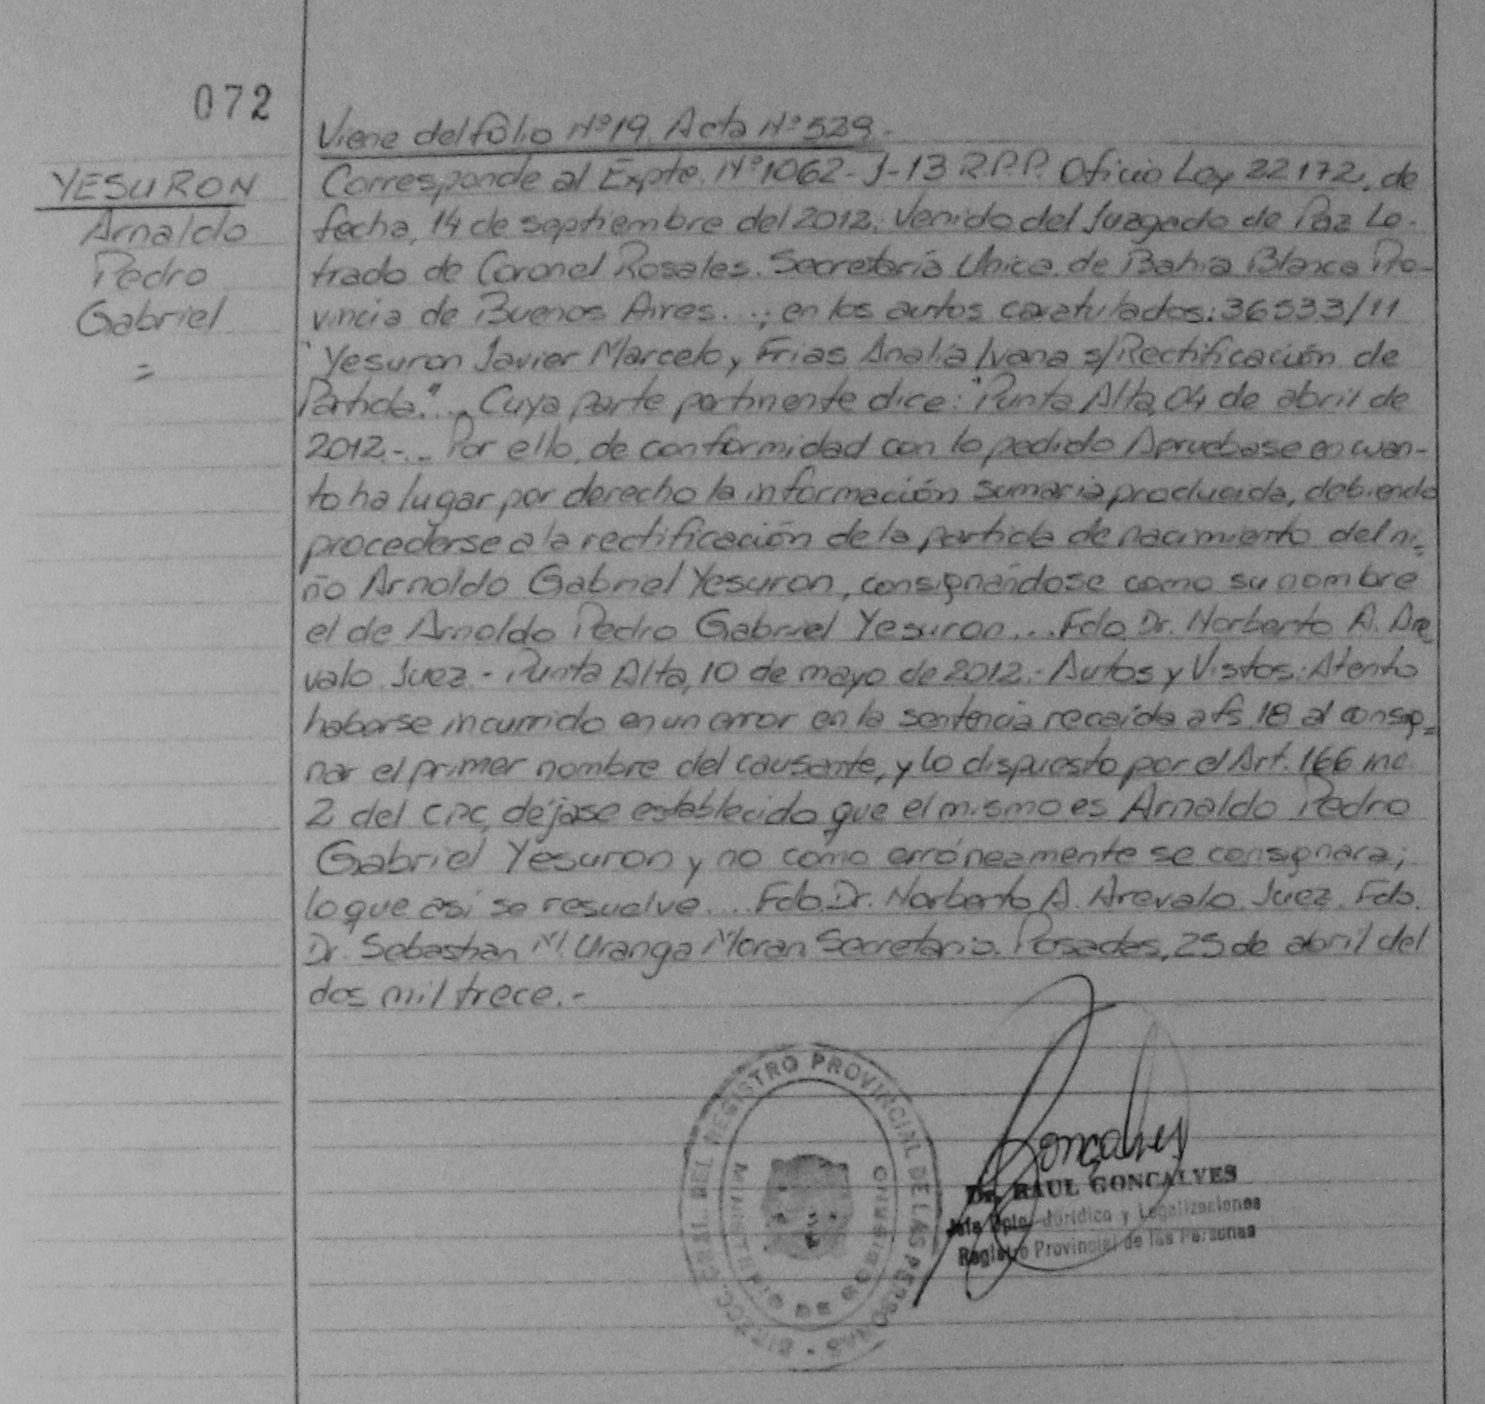 072
YESURON
Arnaldo
Pedro
Gabriel
=
Viene del folio Nº19. Acta Nº529.-
Corresponde al Expte. Nº1062-J-13 R.P.P. Oficio Ley 22172, de
fecha, 14 de septiembre del 2012. Venido del Juzgado de Paz Le-
trado de Coronel Rosales. Secretaría Unica de Bahía Blanca Pro-
vincia de Buenos Aires...; en los autos caratulados: 36533/11
"Yesuron Javier Marcelo y Frias Analía Ivana s/Rectificación de
Partida."... Cuya parte pertinente dice: "Punta Alta, 04 de abril de
2012.-... Por ello, de conformidad con lo pedido Apruebase en cuan-
to ha lugar por derecho la información sumaria producida, debiendo
procederse a la rectificación de la partida de nacimiento del ni=
ño Arnoldo Gabriel Yesuron, consignándose como su nombre
el de Arnoldo Pedro Gabriel Yesuron... Fdo. Dr. Norberto A. Are
valo. Juez.- Punta Alta, 10 de mayo de 2012.- Autos y Vistos: Atento
haberse incurrido en un error en la sentencia recaída a fs. 18 al consig=
nar el primer nombre del causante, y lo dispuesto por el Art. 166 inc.
2 del CPC, déjase establecido que el mismo es Arnaldo Pedro
Gabriel Yesuron y no como erróneamente se consignara;
lo que así se resuelve.... Fdo. Dr. Norberto A. Arevalo. Juez. Fdo.
Dr. Sebastian M. Uranga Moran Secretario. Posadas, 25 de abril del
dos mil trece.-
Gonçalves
Dr. RAUL GONCALVES
Jefe Dpto. Jurídico y Legalizaciones
Registro Provincial de las Personas
DIRECC. GRAL. DEL REGISTRO PROVINCIAL DE LAS PERSONAS
MINISTERIO DE GOBIERNO